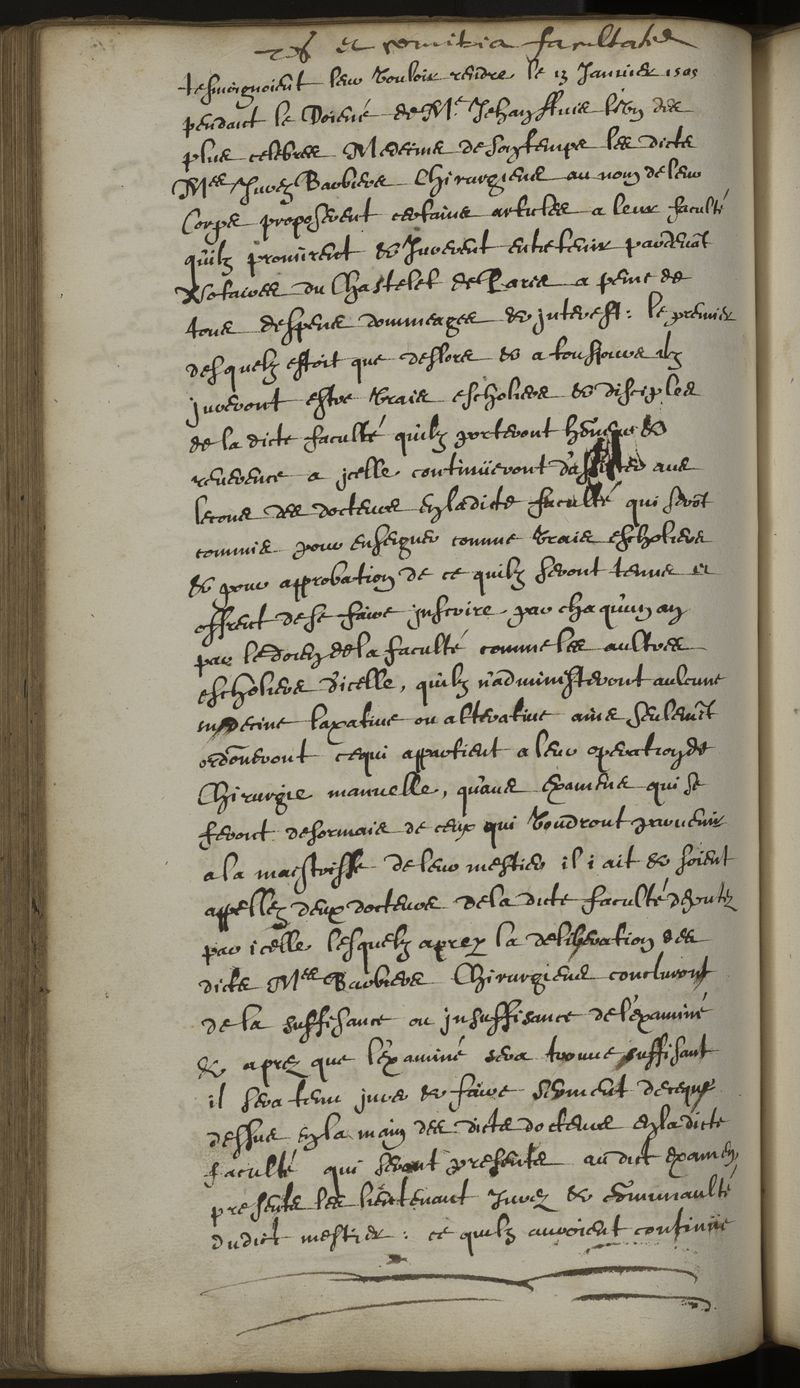 et comitia facultatis
tesmoignoient leur vouloir rendre le 13 Januier 1505
pendant le Doiené de Me Jehan l'un des
plus celebres Medecins de son temps les dicts
Mes Jurez Barbiers Chirurgiens au nom de leur
Corps proposerent certains articles a leur faculté
qu'ilz promirent & Jurerent entretenir pardeuāt
Notaires du Chastelet de Paris a peine de
tous despens dommages & interest : le premier
desquelz estoit que deslors & a tousjours ilz
jureront estre vrais escholiers & disciples
de la dicte faculté qu'ilz porteront hōneur &
reuerence a icelle continüeront d'assister aus
lecons des docteurs en ladicte faculté qui serōt
commis pour enseigner comme vrais escholiers
& pour approbation de ce quilz seront tenus et
offrent de se faire inscrire par chaqu'un an
par le doien de la faculté comme les aultres
escholiers d'icelle, qu'ilz n'administreront aulcune
medecine laxatiue ou alteratiue ains seulemēt
ordōneront ce qui appartient a leur operation de
Chirurgie manuelle, qu'aus examens qui se
feront desormais de ceux qui voudront paruenir
a la maistrisse de leur mestier il i ait & soient
appellez deux docteurs de la dicte faculté deputez
par icelle lesquelz aprez la deliberation des
dicts Mes Barbiers Chirurgiens concluront
de la suffisance ou insuffisance de l'examiné
& aprez que l'examiné sera trouue suffisant
il sera tenu jurer & faire serment de ce que
dessus en la main des dicts docteurs en ladicte
faculté qui seront presents audict examen
presents les lieutenant Jurez & cōmunaulté
dudict mestier : ce quilz auroient continüe